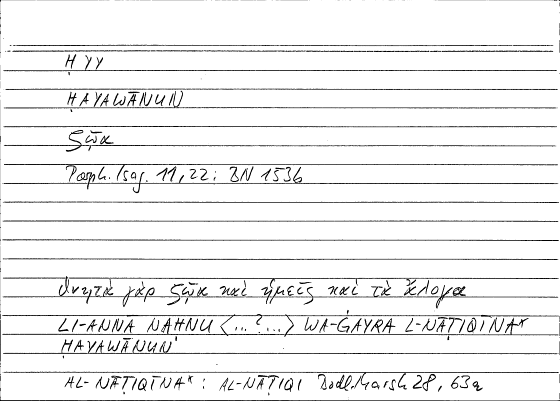 Ḥ Y Y
ḤAYAWĀNUN
ζῷα
Porph. Isag. 11,22; BN 153b
θνητὰ γὰρ ζῷα καὶ ἡμεῖς καὶ τὰ ἄλογα
LI-ANNA NAḤNU <...?...> WA-ĠAYRA L-NĀṬIQĪNA*
ḤAYAWĀNUN
AL-NĀṬIQĪNA*: AL-NĀṬIQI Bodl. Marsh 28, 63a